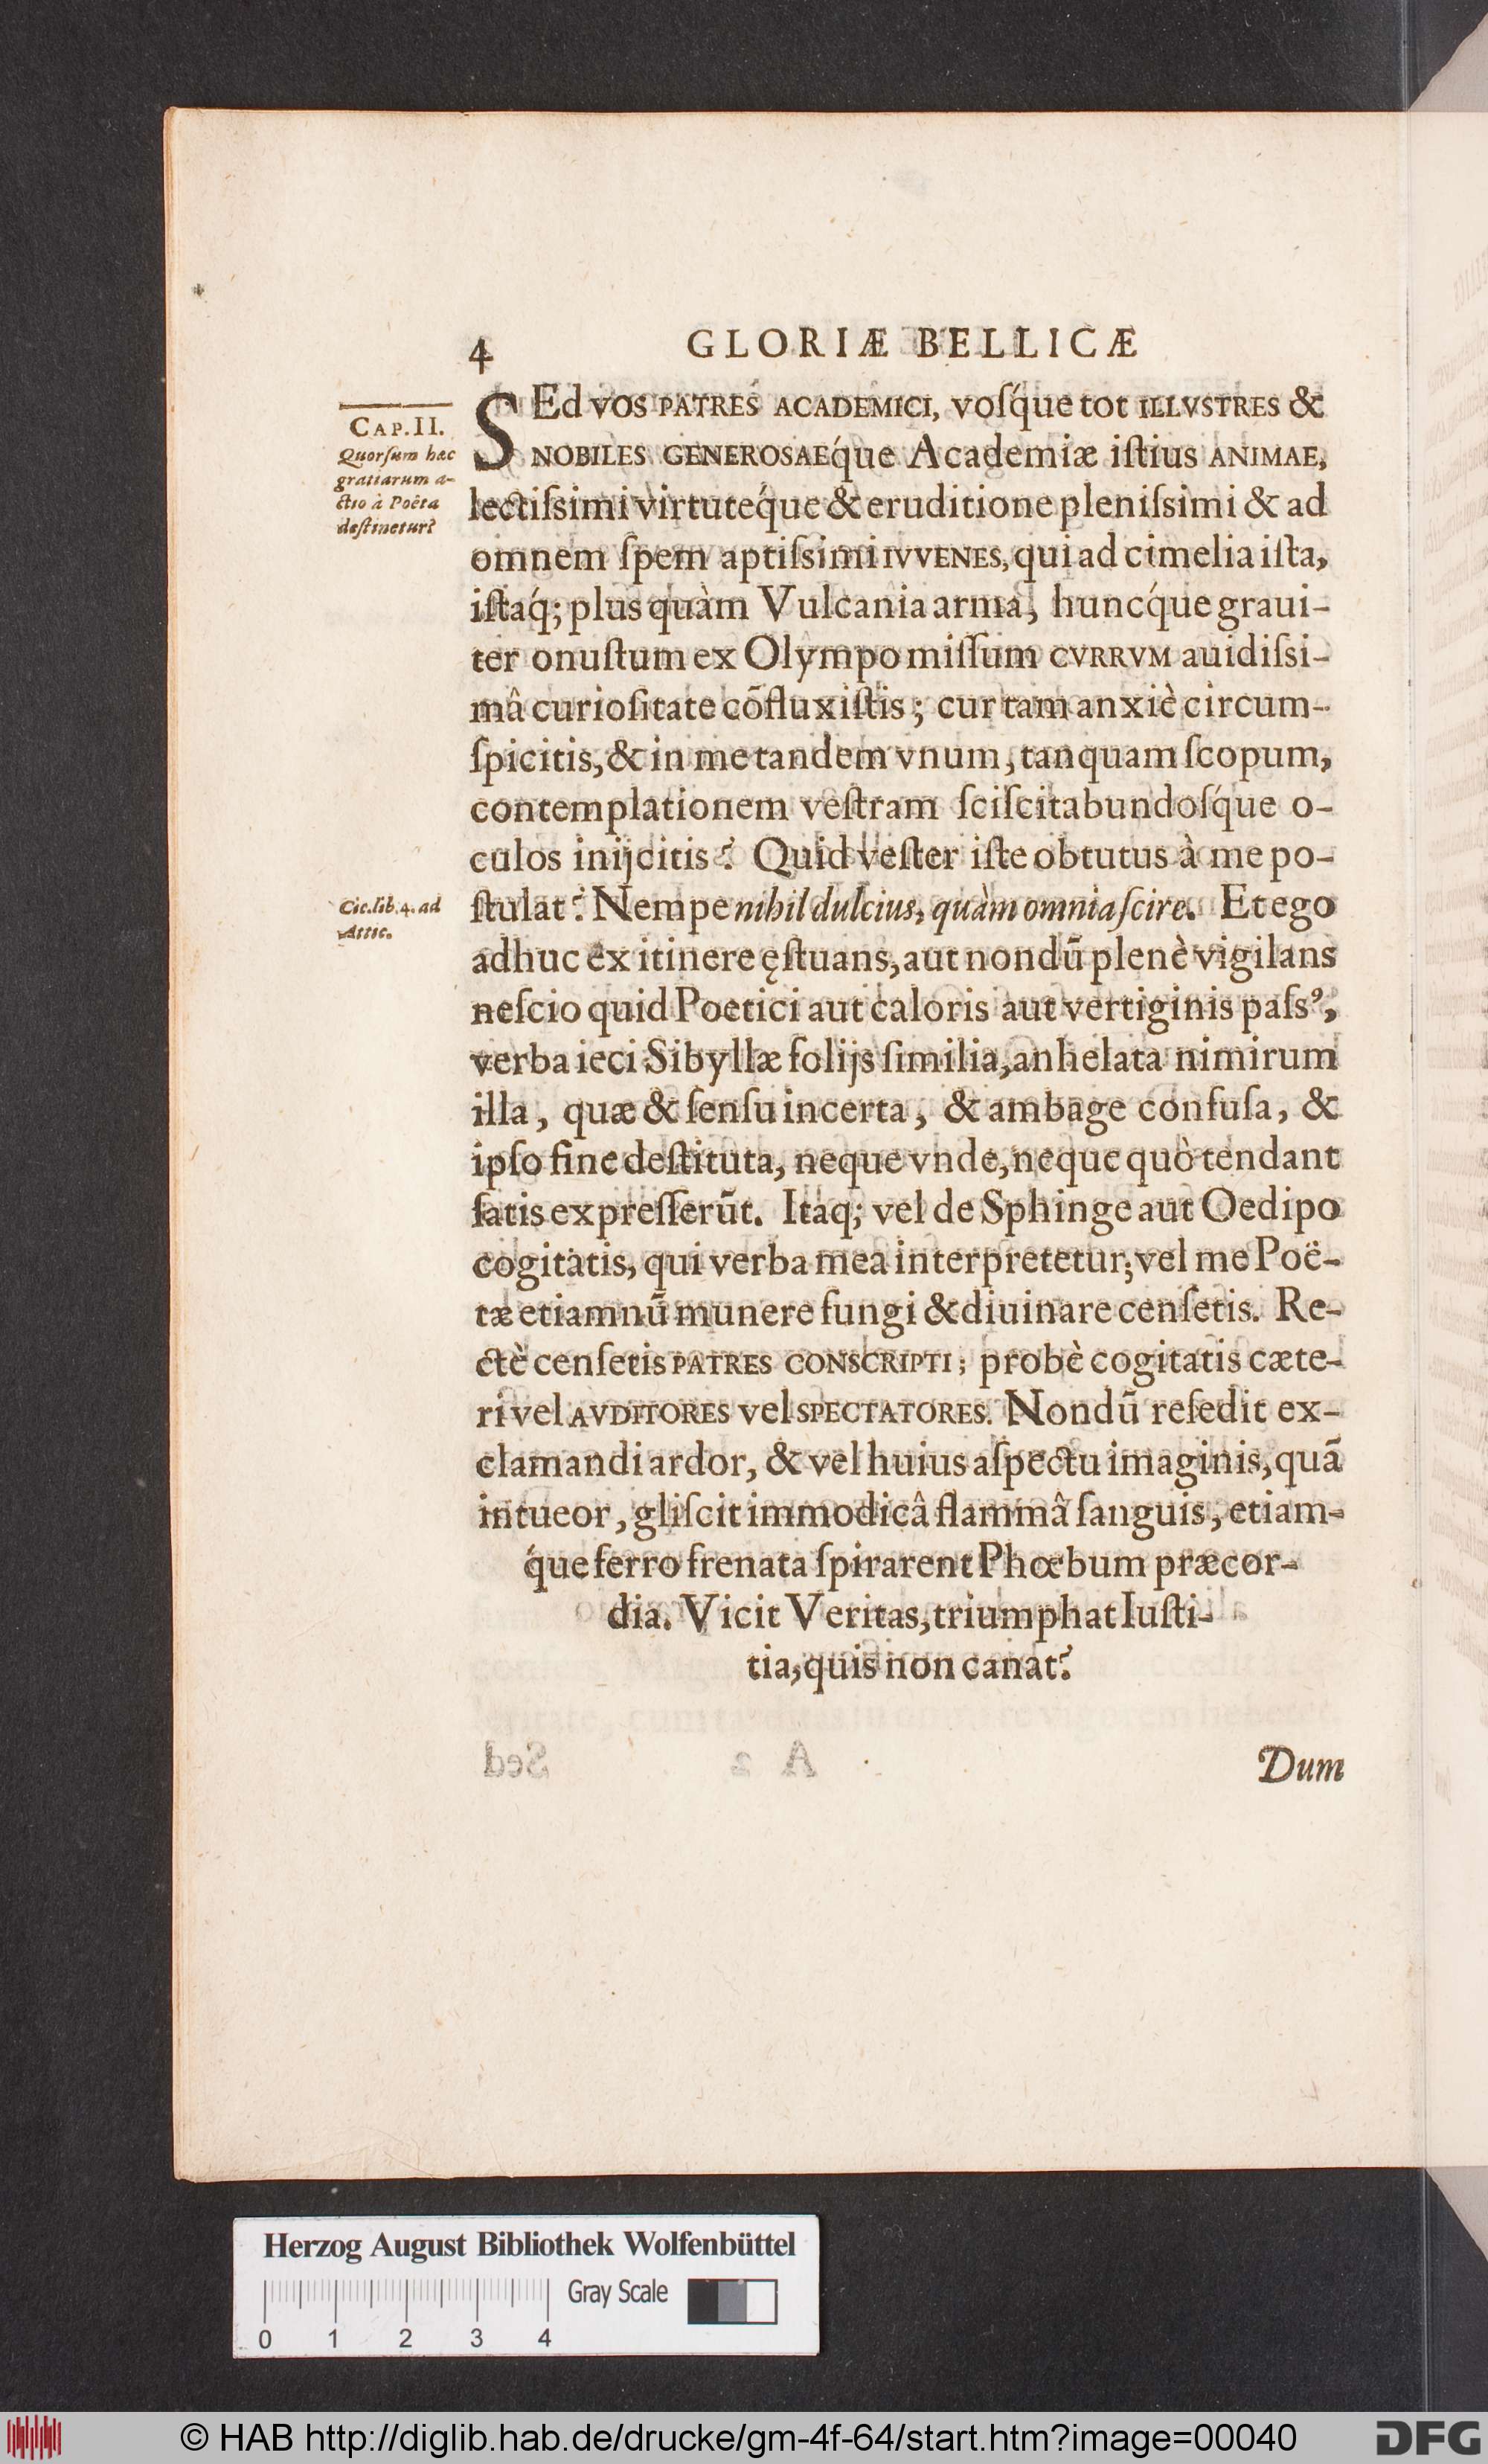 4 GLORIÆ BELLICÆ
CAP. II.
Quorſum hæc
gratiarum a-
ctio à Poëta
deſtinetur?
SEd VOS PATRES ACADEMICI, voſq́ue tot ILLVSTRES &
NOBILES GENEROSAEq́ue Academiæ iſtius ANIMAE,
lectiſsimi virtuteq́ue & eruditione pleniſsimi & ad
omnem ſpem aptiſsimi IVVENES, qui ad cimelia iſta,
iſtaq́; plus quàm Vulcania arma, huncq́ue graui-
ter onuſtum ex Olympo miſſum CVRRVM auidiſsi-
mâ curioſitate cõfluxiſtis; cur tam anxiè circum-
ſpicitis, & in me tandem vnum, tanquam ſcopum,
contemplationem veſtram ſciſcitabundoſq́ue o-
culos inijcitis? Quid veſter iſte obtutus à me po-
ſtulat? Nempe nihil dulcius, quàm omnia ſcire. Et ego
Cic. lib. 4. ad
Attic.
adhuc ex itinere ęſtuans, aut nondũ plenè vigilans
neſcio quid Poetici aut caloris aut vertiginis paſsꝰ,
verba ieci Sibyllæ folijs ſimilia, anhelata nimirum
illa, quæ & ſenſu incerta, & ambage confuſa, &
ipſo fine deſtituta, neque vnde, neque quò tendant
ſatis expreſſerũt. Itaq; vel de Sphinge aut Oedipo
cogitatis, qui verba mea interpretetur; vel me Poë-
tæ etiamnũ munere fungi & diuinare cenſetis. Re-
ctè cenſetis PATRES CONSCRIPTI; probè cogitatis cæte-
ri vel AVDITORES vel SPECTATORES. Nondũ reſedit ex-
clamandi ardor, & vel huius aſpectu imaginis, quã
intueor, gliſcit immodicâ flammâ ſanguis, etiam-
q́ue ferro frenata ſpirarent Phœbum præcor-
dia. Vicit Veritas, triumphat Iuſti-
tia, quis non canat?
Dum
Herzog August Bibliothek Wolfenbüttel
Gray Scale
0 1 2 3 4
© HAB http://diglib.hab.de/drucke/gm-4f-64/start.htm?image=00040
DFG